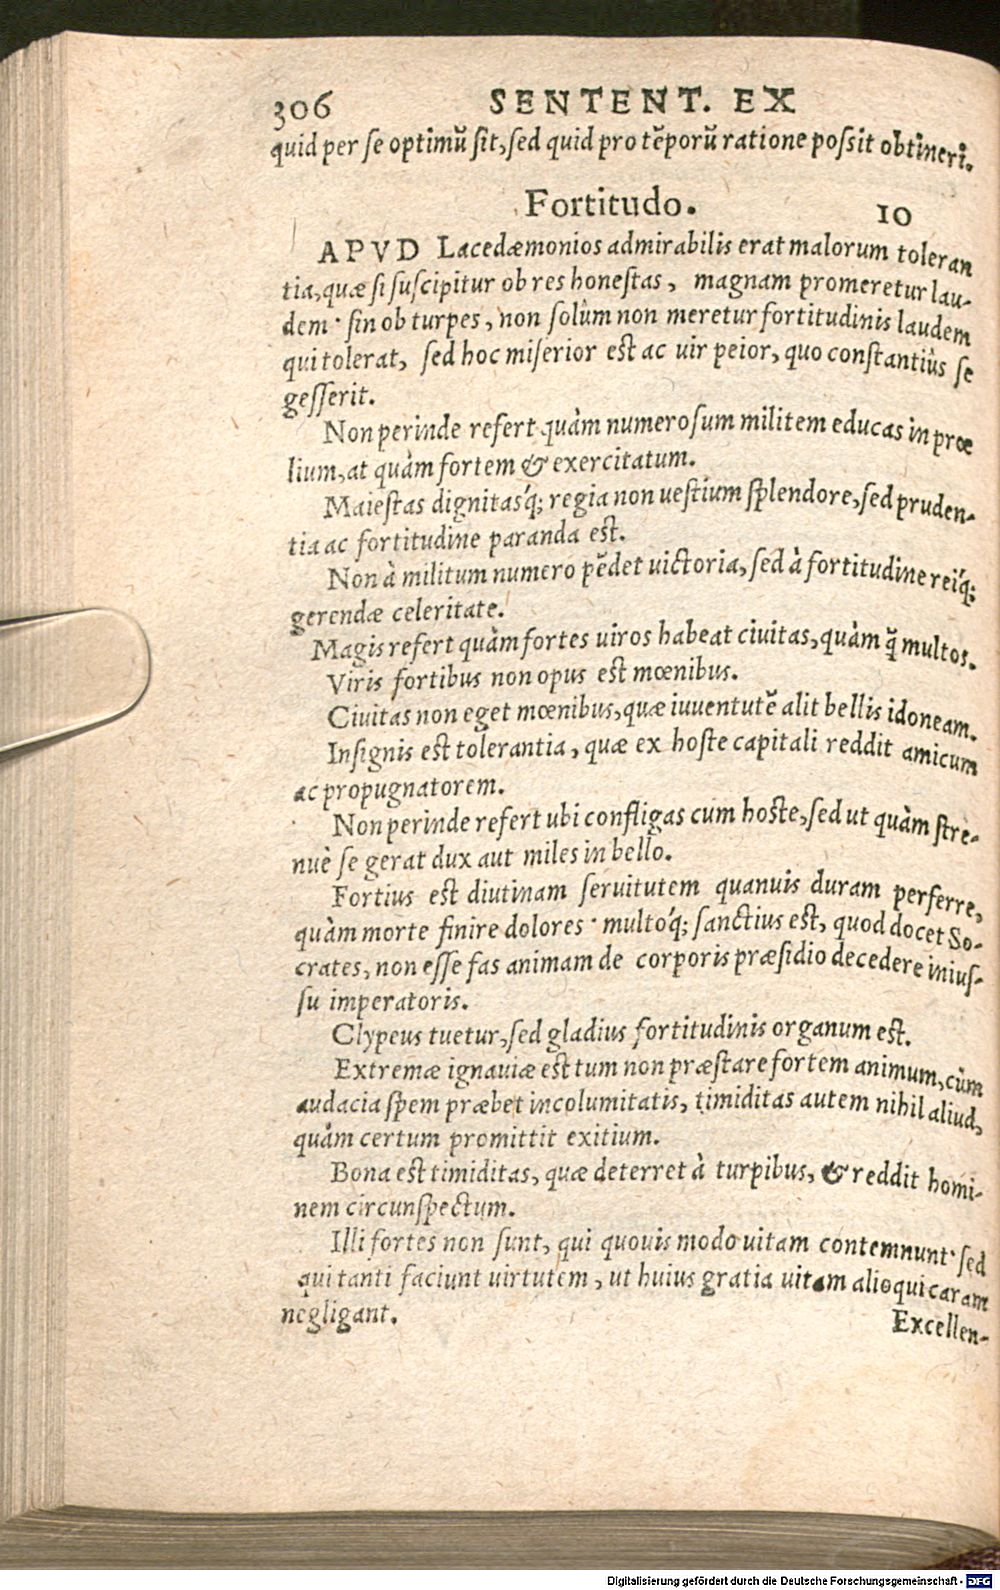 306 SENTENT. EX
quid per se optimũ sit, sed quid pro tẽporũ ratione possit obtineri.
Fortitudo. 10
APVD Lacedæmonios admirabilis erat malorum toleran
tia, quæ si suscipitur ob res honestas, magnam promeretur lau-
dem· sin ob turpes, non solùm non meretur fortitudinis laudem
qui tolerat, sed hoc miserior est ac uir peior, quo constantiùs se
gesserit.
Non perinde refert quàm numerosum militem educas in prœ
lium, at quàm fortem & exercitatum.
Maiestas dignitasq́; regia non uestium splendore, sed pruden-
tia ac fortitudine paranda est.
Non à militum numero pẽdet uictoria, sed à fortitudine reiq́;
gerendæ celeritate.
Magis refert quàm fortes uiros habeat ciuitas, quàm q̃ multos.
Viris fortibus non opus est mœnibus.
Ciuitas non eget mœnibus, quæ iuuentutẽ alit bellis idoneam.
Insignis est tolerantia, quæ ex hoste capitali reddit amicum
ac propugnatorem.
Non perinde refert ubi confligas cum hoste, sed ut quàm stre-
nuè se gerat dux aut miles in bello.
Fortius est diutinam seruitutem quanuis duram perferre,
quàm morte finire dolores· multoq́; sanctius est, quod docet So-
crates, non esse fas animam de corporis præsidio decedere inius-
su imperatoris.
Clypeus tuetur, sed gladius fortitudinis organum est.
Extremæ ignauiæ est tum non præstare fortem animum, cùm
audacia spem præbet incolumitatis, timiditas autem nihil aliud,
quàm certum promittit exitium.
Bona est timiditas, quæ deterret à turpibus, & reddit homi-
nem circunspectum.
Illi fortes non sunt, qui quouis modo uitam contemnunt· sed
qui tanti faciunt uirtutem, ut huius gratia uitam alioqui caram
negligant.
Excellen-
Digitalisierung gefördert durch die Deutsche Forschungsgemeinschaft - DFG